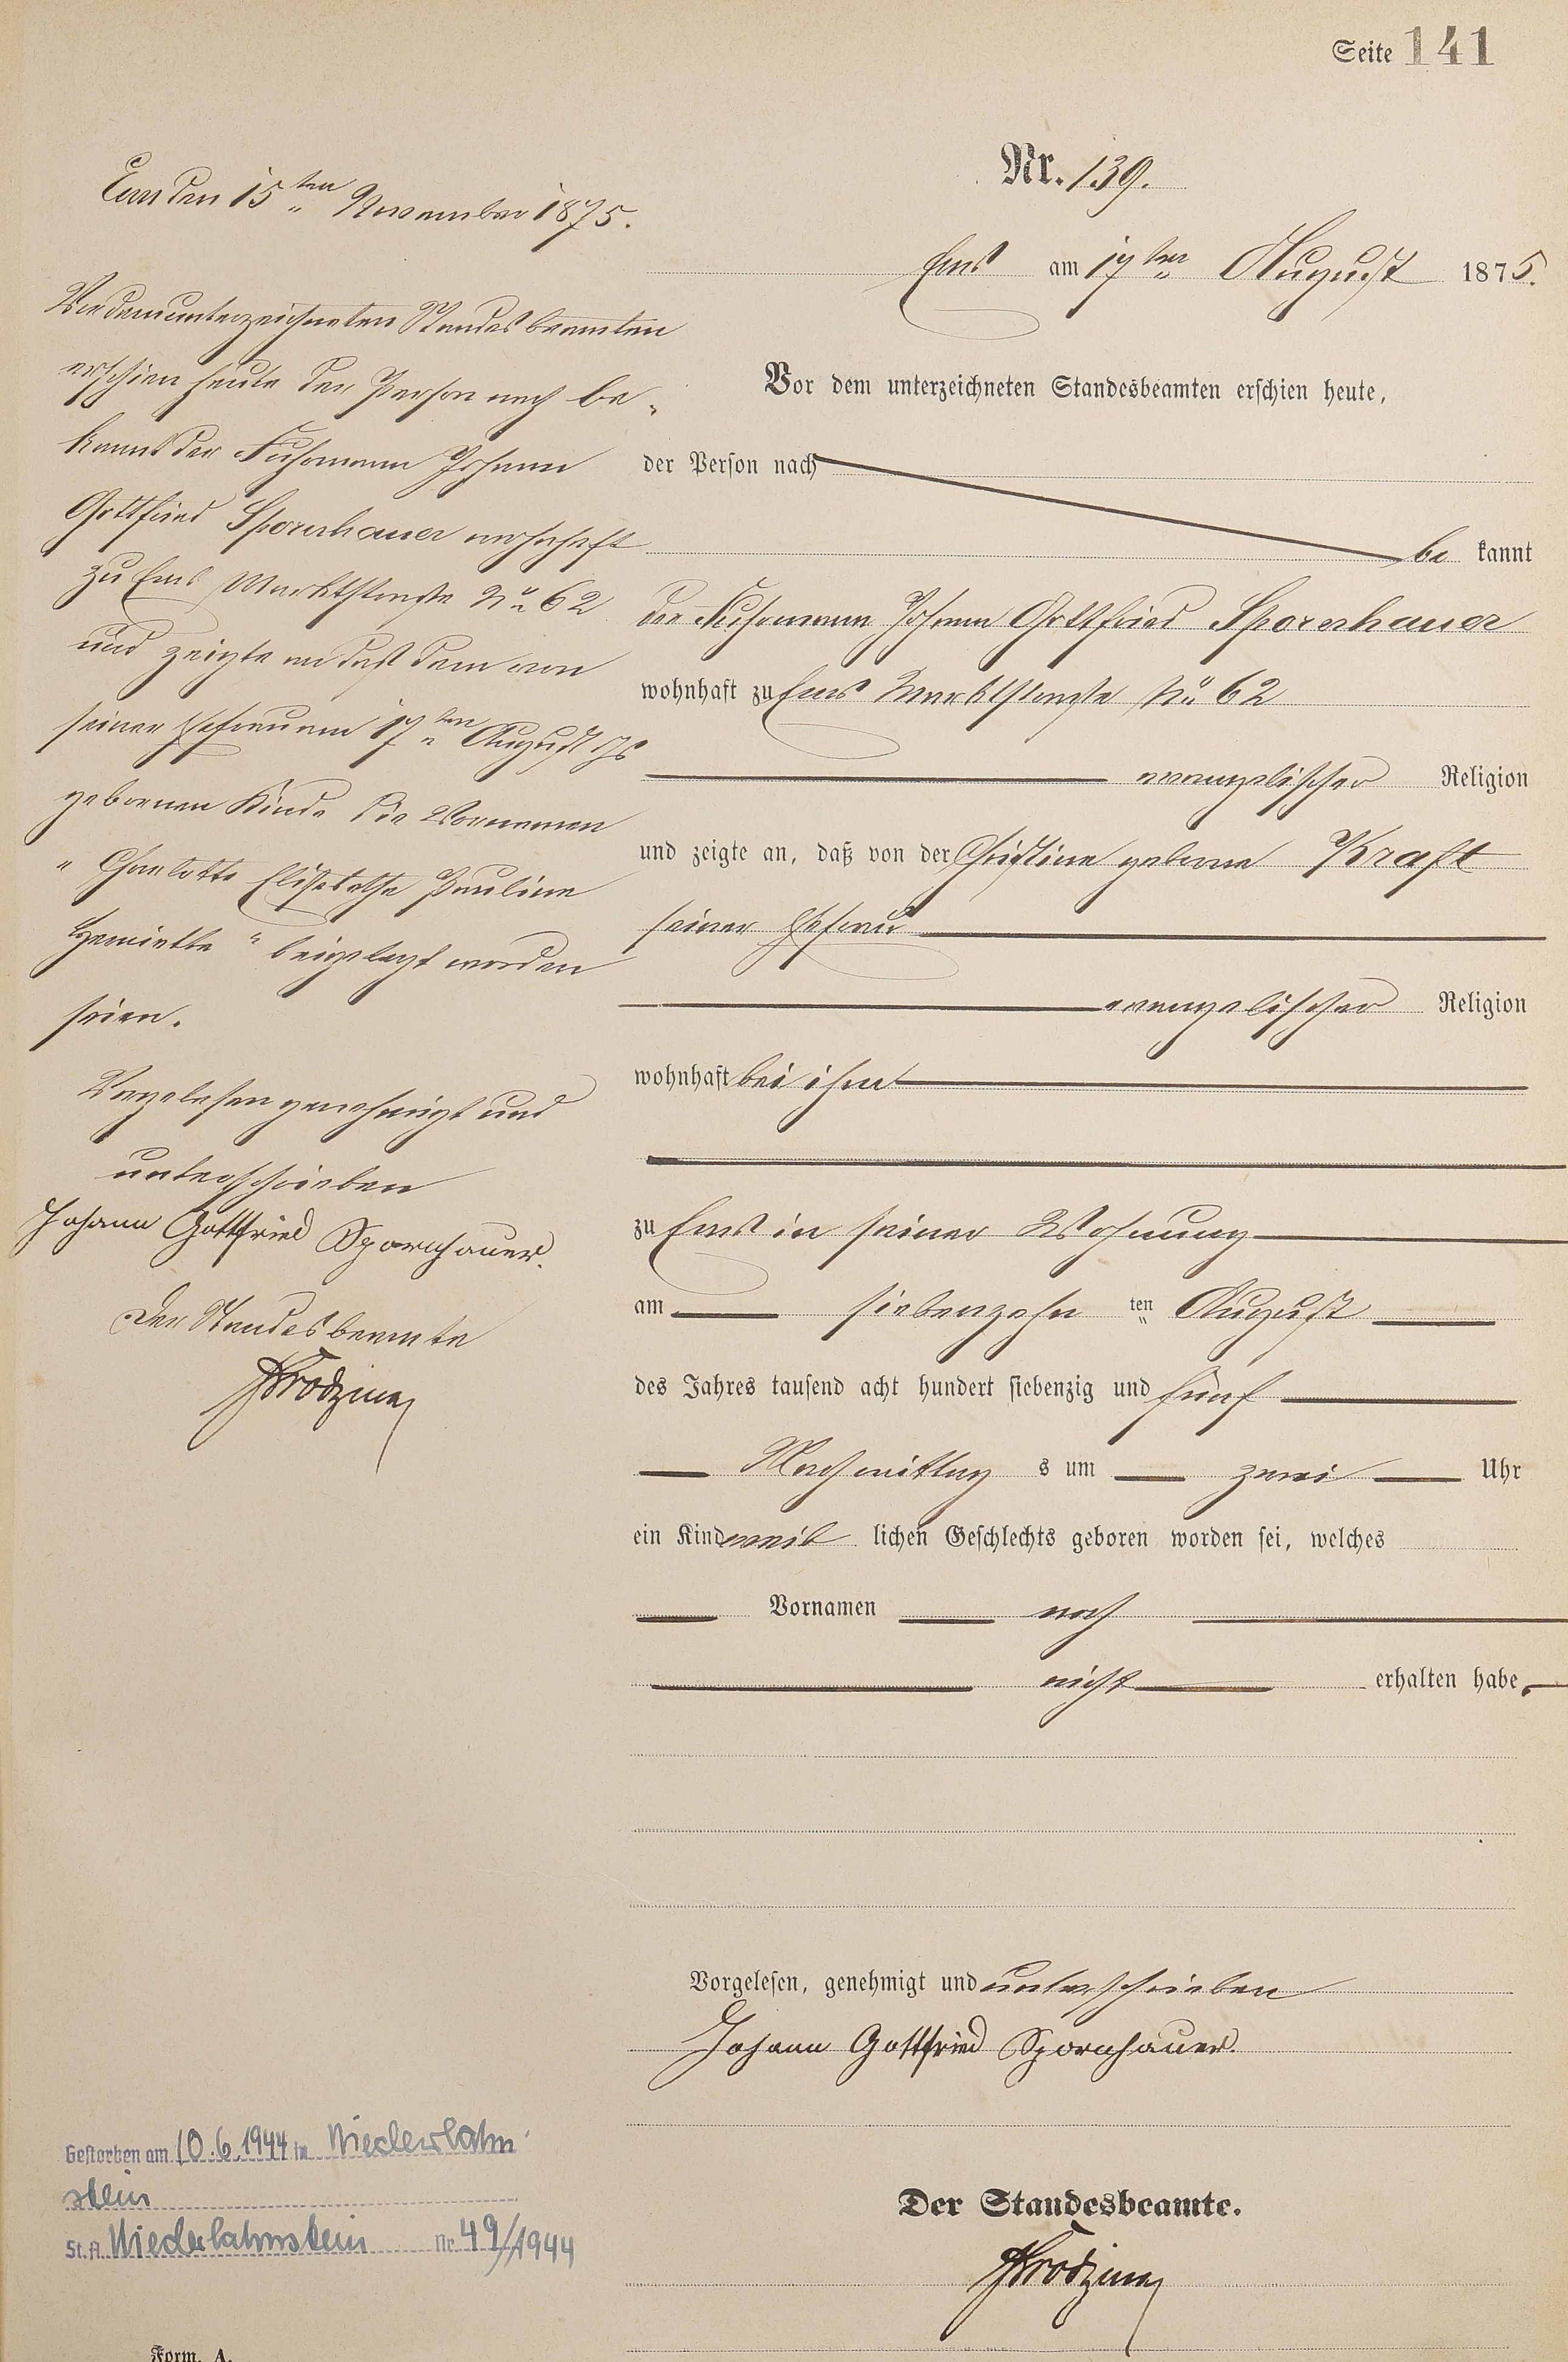 Seite 141
Nr. 139.
Ems am 17ten August 1875.
Vor dem unterzeichneten Standesbeamten erschien heute,
der Person nach
be kannt
der Fuhrmann Johann Gottfried Spornhauer
wohnhaft zu Ems Marktstraße No 62
evangelischer Religion
und zeigte an, daß von der Christine geborne Kraft
seiner Ehefrau
evangelischer Religion
wohnhaft bei ihm
zu Ems in seiner Wohnung
am siebenzehn ten August
des Jahres tausend acht hundert siebenzig und fünf
Nachmittag s um zwei Uhr
ein Kind weib lichen Geschlechts geboren worden sei, welches
Vornamen noch
nicht erhalten habe.
Vorgelesen, genehmigt und unterschrieben
Johann Gottfried Spornhauer.
Der Standesbeamte.
Ems den 15ten November 1875.
Vor dem unterzeichneten Standesbeamten
erschien heute der Person nach be-
kannt der Fuhrmann Johann
Gottfried Spornhauer wohnhaft
zu Ems Marktstraße No 62
und zeigte an daß dem von
seiner Ehefrau am 17ten August d Js
gebornen Kinde die Vornamen
"Charlotte Elisabethe Pauline
Henriette" beigelegt worden
seien.
Vorgelesen genehmigt und
unterschrieben
Johann Gottfried Spornhauer.
Der Standesbeamte
Gestorben am 10.6.1944 in Niederlahn
stein
St.A. Niederlahnstein Nr. 49/1944
Form. A.